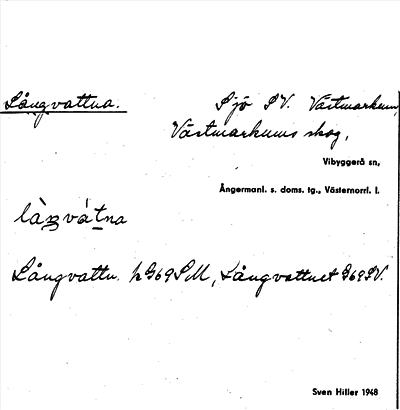 Långvattna. Sjö SV. Västmarkum,
Västmarkums skog,
Vibyggerå sn,
Ångermanl. s. doms. tg., Västernorrl. l.
Långvattn. h G69SM, Långvattnet G69SV.
Sven Hiller 1948